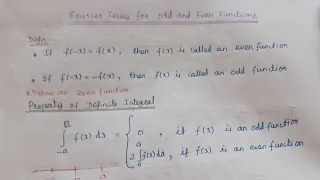 Fourier Series for odd and Even Functions
Defn:-
* If f(-x) = f(x), then f(x) is called an even function
* If f(-x) = -f(x), then f(x) is called an odd function
* Define an even function
Property of Definite Integral
∫_{-a}^{a} f(x) dx = { 0, if f(x) is an odd function
2∫_{0}^{a} f(x) dx, if f(x) is an even function